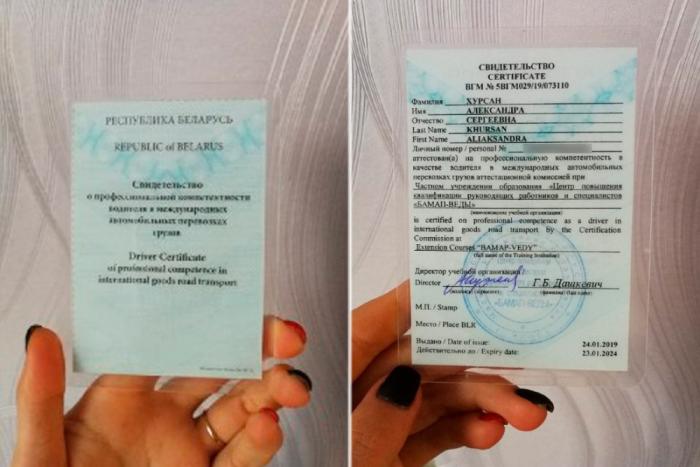 РЕСПУБЛИКА БЕЛАРУСЬ
REPUBLIC of BELARUS
Свидетельство
о профессиональной компетентности
водителя в международных
автомобильных перевозках
грузов
Driver Certificate
of professional competence in
international goods road transport
СВИДЕТЕЛЬСТВО
CERTIFICATE
ВГМ № 5ВГМ029/19/073110
Фамилия ХУРСАН
Имя АЛЕКСАНДРА
Отчество СЕРГЕЕВНА
Last Name KHURSAN
First Name ALIAKSANDRA
Личный номер / personal №
аттестован(а) на профессиональную компетентность в
качестве водителя в международных автомобильных
перевозках грузов аттестационной комиссией при
Частном учреждении образования «Центр повышения
квалификации руководящих работников и специалистов
«БАМАП-ВЕДЫ»
(наименование учебной организации)
is certified on professional competence as a driver in
international goods road transport by the Certification
Commission at
Extension Courses "BAMAP-VEDY"
(full name of the Training Institution)
Директор учебной организации
Director Г.Б. Дашкевич
(подпись) (фамилия) (full name)
«БАМАП-ВЕДЫ»
М.П. / Stamp
Место / Place BLR
Выдано / Date of issue: 24.01.2019
Действительно до / Expiry date: 23.01.2024